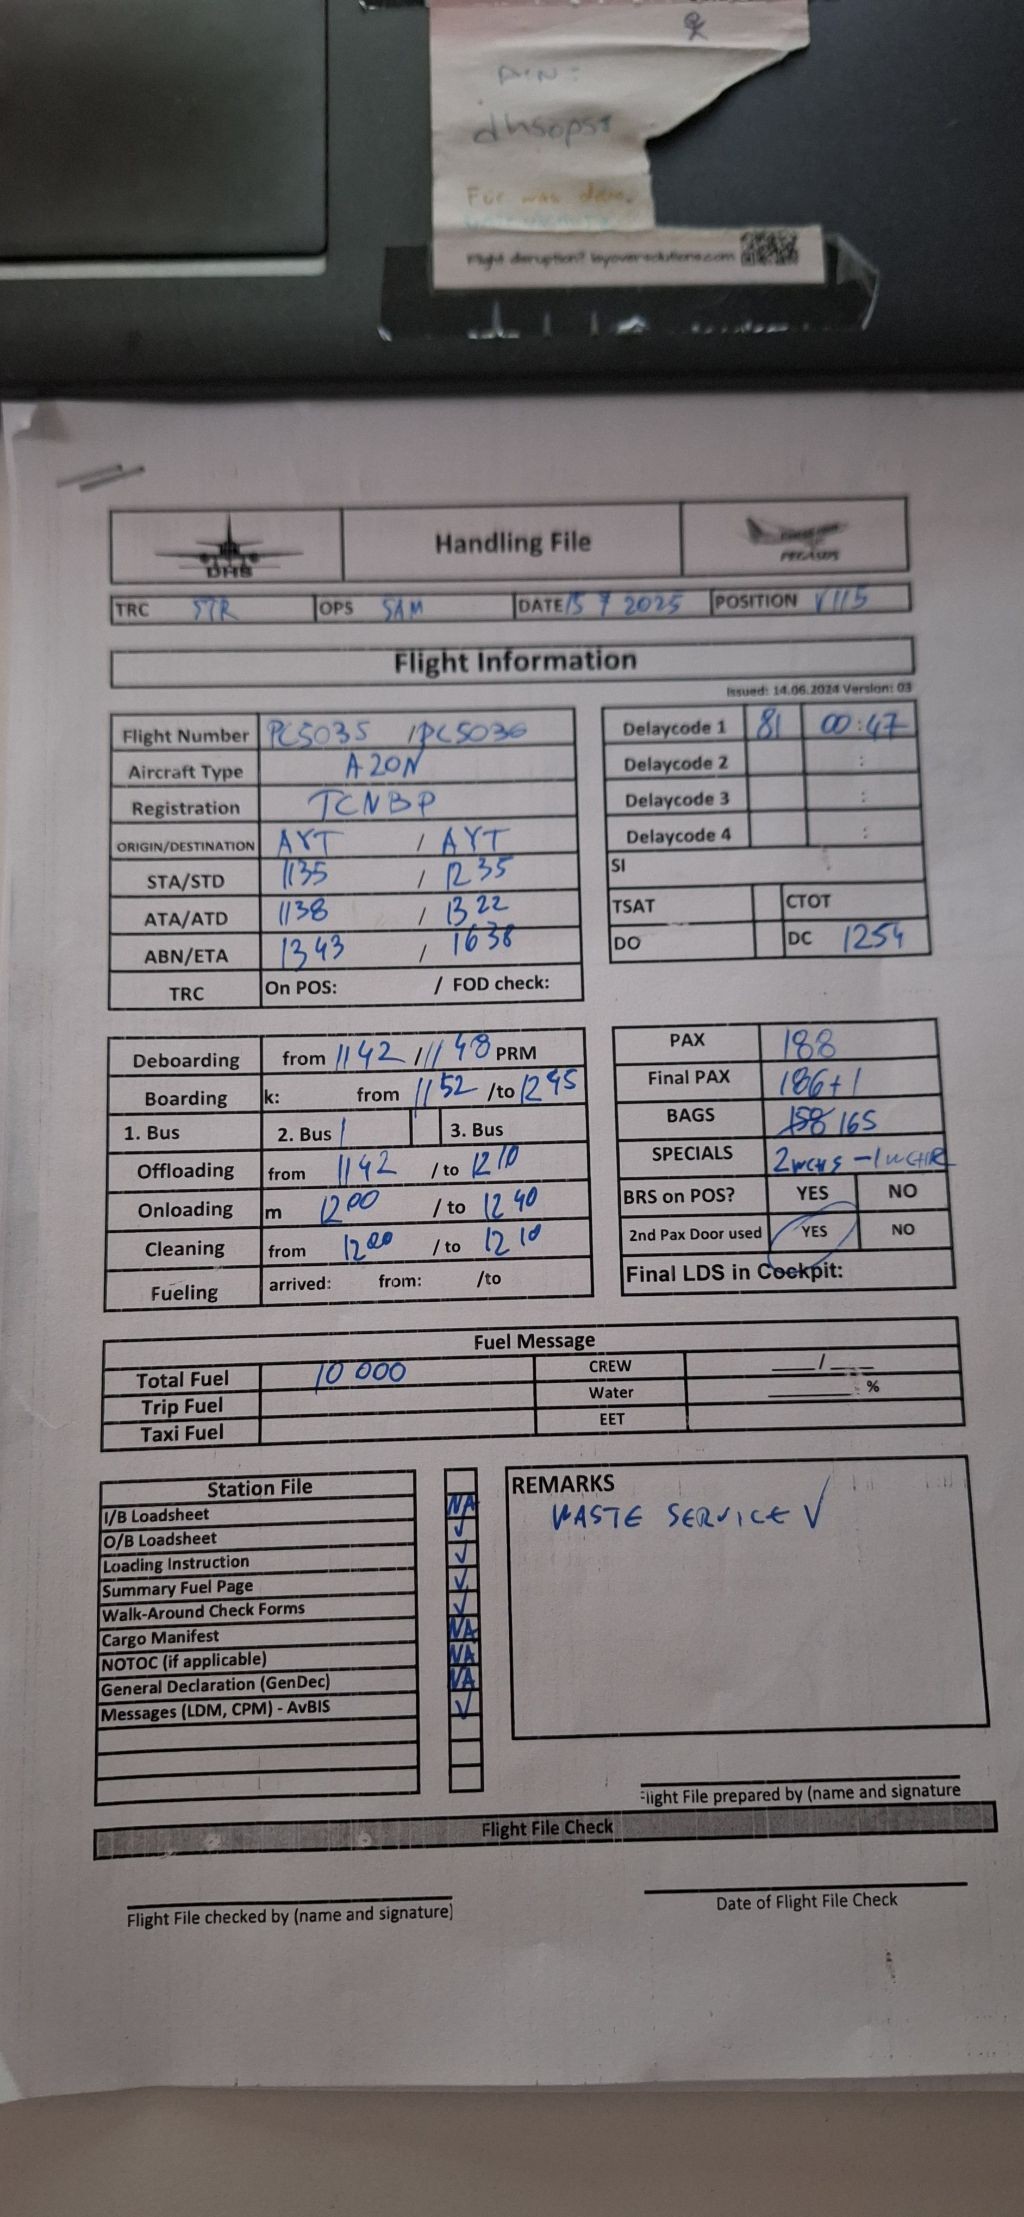 PIN:
dhsops1
Für was denn.
Flight disruption? layoversolutions.com
DHS
Handling File
PEGASUS
TRC STR OPS SAM DATE 15 7 2025 POSITION V115
Flight Information
Issued: 14.06.2024 Version: 03
Flight Number PC5035 / PC5036
Aircraft Type A20N
Registration TCNBP
ORIGIN/DESTINATION AYT / AYT
STA/STD 1135 / 1235
ATA/ATD 1138 / 1322
ABN/ETA 1343 / 1638
TRC On POS: / FOD check:
Delaycode 1 81 00:47
Delaycode 2 :
Delaycode 3 :
Delaycode 4 :
SI
TSAT CTOT
DO DC 1254
Deboarding from 1142 / 1148 PRM
Boarding k: from 1152 /to 1245
1. Bus 2. Bus 3. Bus
Offloading from 1142 / to 1210
Onloading m 1200 / to 1240
Cleaning from 1200 / to 1210
Fueling arrived: from: /to
PAX 188
Final PAX 186+1
BAGS 158 165
SPECIALS 2 WCHS - 1 WCHR
BRS on POS? YES NO
2nd Pax Door used YES NO
Final LDS in Cockpit:
Fuel Message
Total Fuel 10 000 CREW ___/___
Trip Fuel Water ______ %
Taxi Fuel EET
Station File
I/B Loadsheet NA
O/B Loadsheet ✓
Loading Instruction ✓
Summary Fuel Page ✓
Walk-Around Check Forms ✓
Cargo Manifest NA
NOTOC (if applicable) NA
General Declaration (GenDec) NA
Messages (LDM, CPM) - AvBIS ✓
REMARKS
WASTE SERVICE ✓
Flight File prepared by (name and signature
Flight File Check
Flight File checked by (name and signature)
Date of Flight File Check